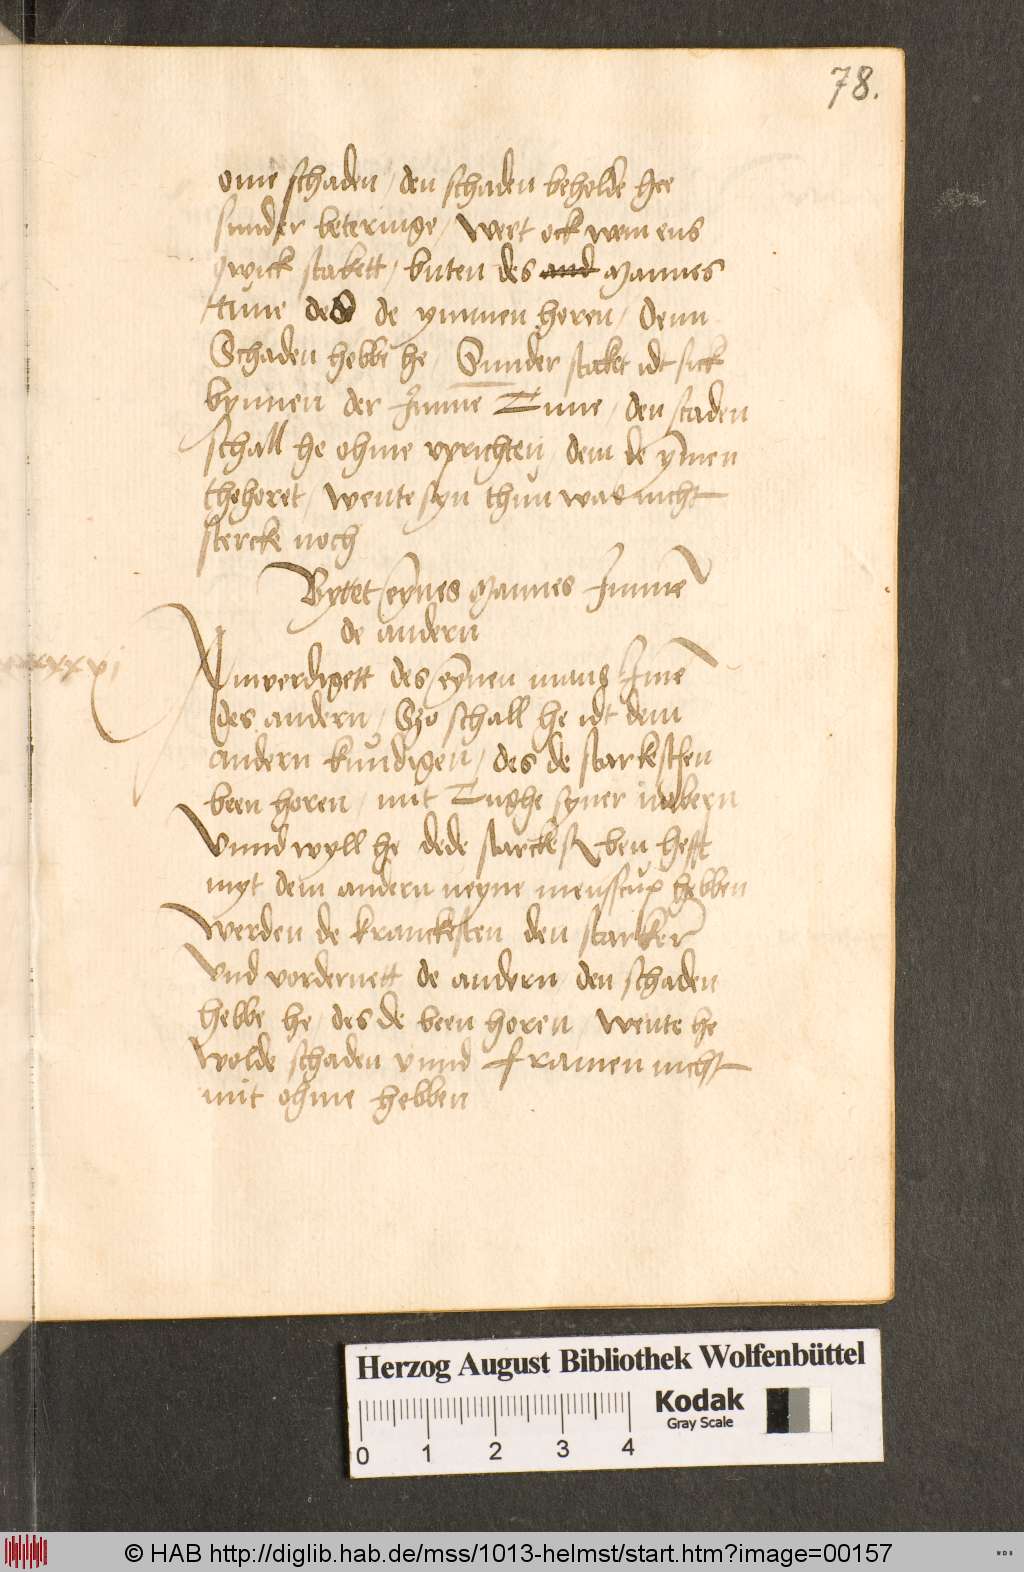 78.
ome schaden / den schaden beholde hee
sunder beteringe / Wert ock wem ens
qwick stakett / buten des and mannes
tune de de ymmen horen / Denn
Schaden hebbe he / Sunder staket idt sick
bynnen der Jmme Tune / den scaden
schall he ohme vprichten / dem de ymen
thohoret / wente syn thun was nicht
stercke noch
Bytet eynes mannes Jmme
de andern
xxxxxi
Anverdigett des eynen mans Jme
des andern / Szo schall he idt dem
andern kundigen / des de starkesten
been horen / mit Tughe syner nabern
Vnnd wyll he dede starckest ben hefft
myt dem andern neyne mensscup hebben
Werden de kranckesten den starker
Vnd vordernett de andern den schaden
hebbe he / des de been horen / Wente he
wolde schaden vnnd framen nicht
mit ohme hebben
Herzog August Bibliothek Wolfenbüttel
Kodak
Gray Scale
0 1 2 3 4
© HAB http://diglib.hab.de/mss/1013-helmst/start.htm?image=00157